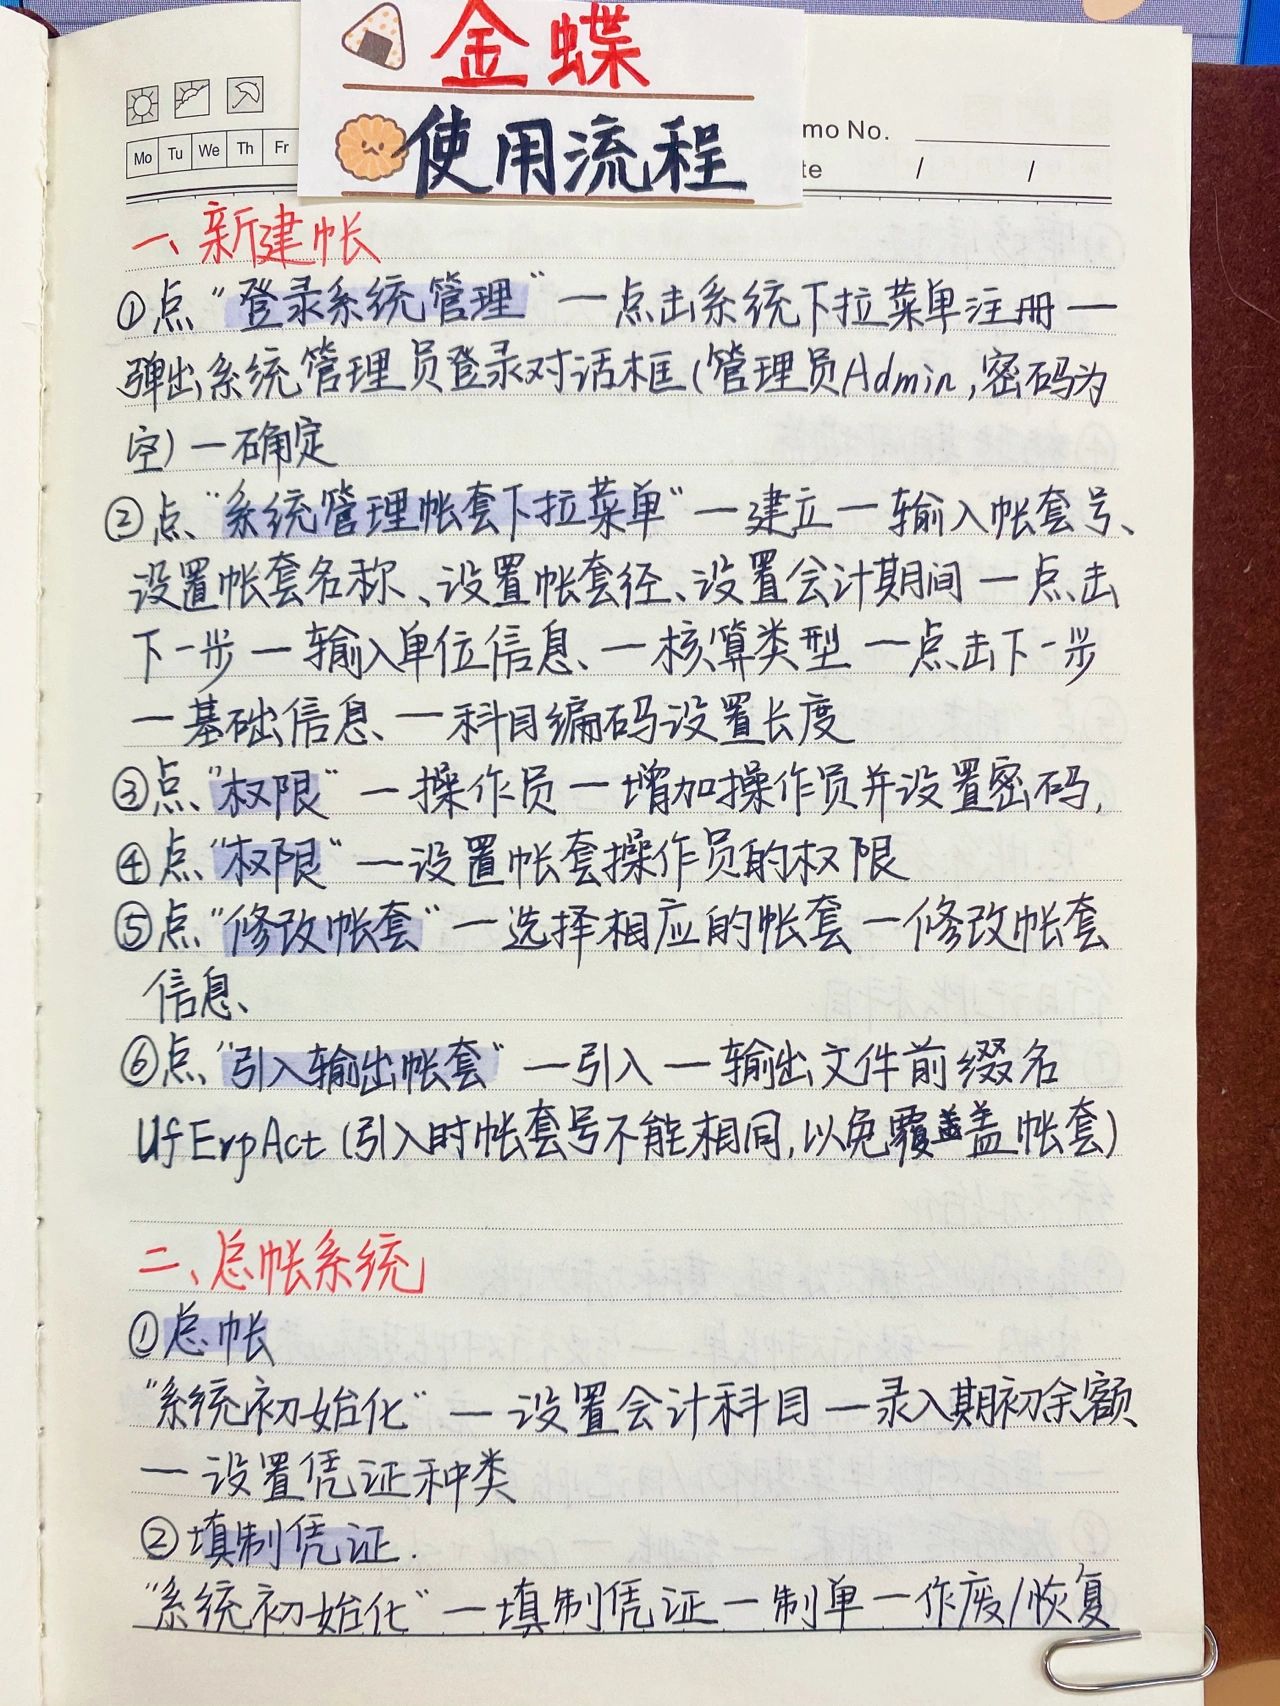 金蝶
使用流程
Mo Tu We Th Fr
mo No.
te / /
一、新建帐
①点“登录系统管理”一点击系统下拉菜单注册一
弹出系统管理员登录对话框(管理员Admin,密码为
空)一确定
②点“系统管理帐套下拉菜单”一建立一输入帐套号、
设置帐套名称、设置帐套径、设置会计期间一点击
下一步一输入单位信息、一核算类型一点击下一步
一基础信息、一科目编码设置长度
③点“权限”一操作员一增加操作员并设置密码,
④点“权限”一设置帐套操作员的权限
⑤点“修改帐套”一选择相应的帐套一修改帐套
信息、
⑥点“引入输出帐套”一引入一输出文件前缀名
UfErpAct(引入时帐套号不能相同,以免覆盖盖帐套)
二、总帐系统
①总帐
“系统初始化”一设置会计科目一录入期初余额
一设置凭证种类
②填制凭证.
“系统初始化”一填制凭证一制单一作废/恢复